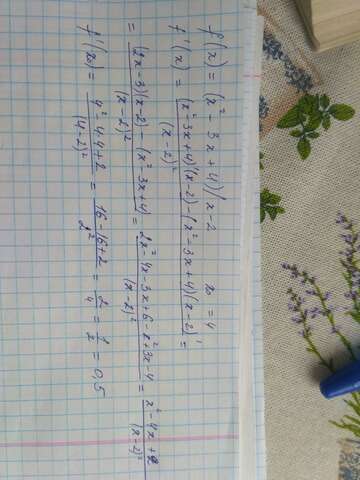 f(x) = (x² - 3x + 4)/x - 2     x₀ = 4
f'(x) = (x² - 3x + 4)'(x - 2) - (x² - 3x + 4)(x - 2)' / (x - 2)² =
= (2x - 3)(x - 2) - (x² - 3x + 4) / (x - 2)² = 2x² - 4x - 3x + 6 - x² + 3x - 4 / (x - 2)² = x² - 4x + 2 / (x - 2)²
f'(x₀) = 4² - 4·4 + 2 / (4 - 2)² = 16 - 16 + 2 / 2² = 2/4 = 1/2 = 0,5